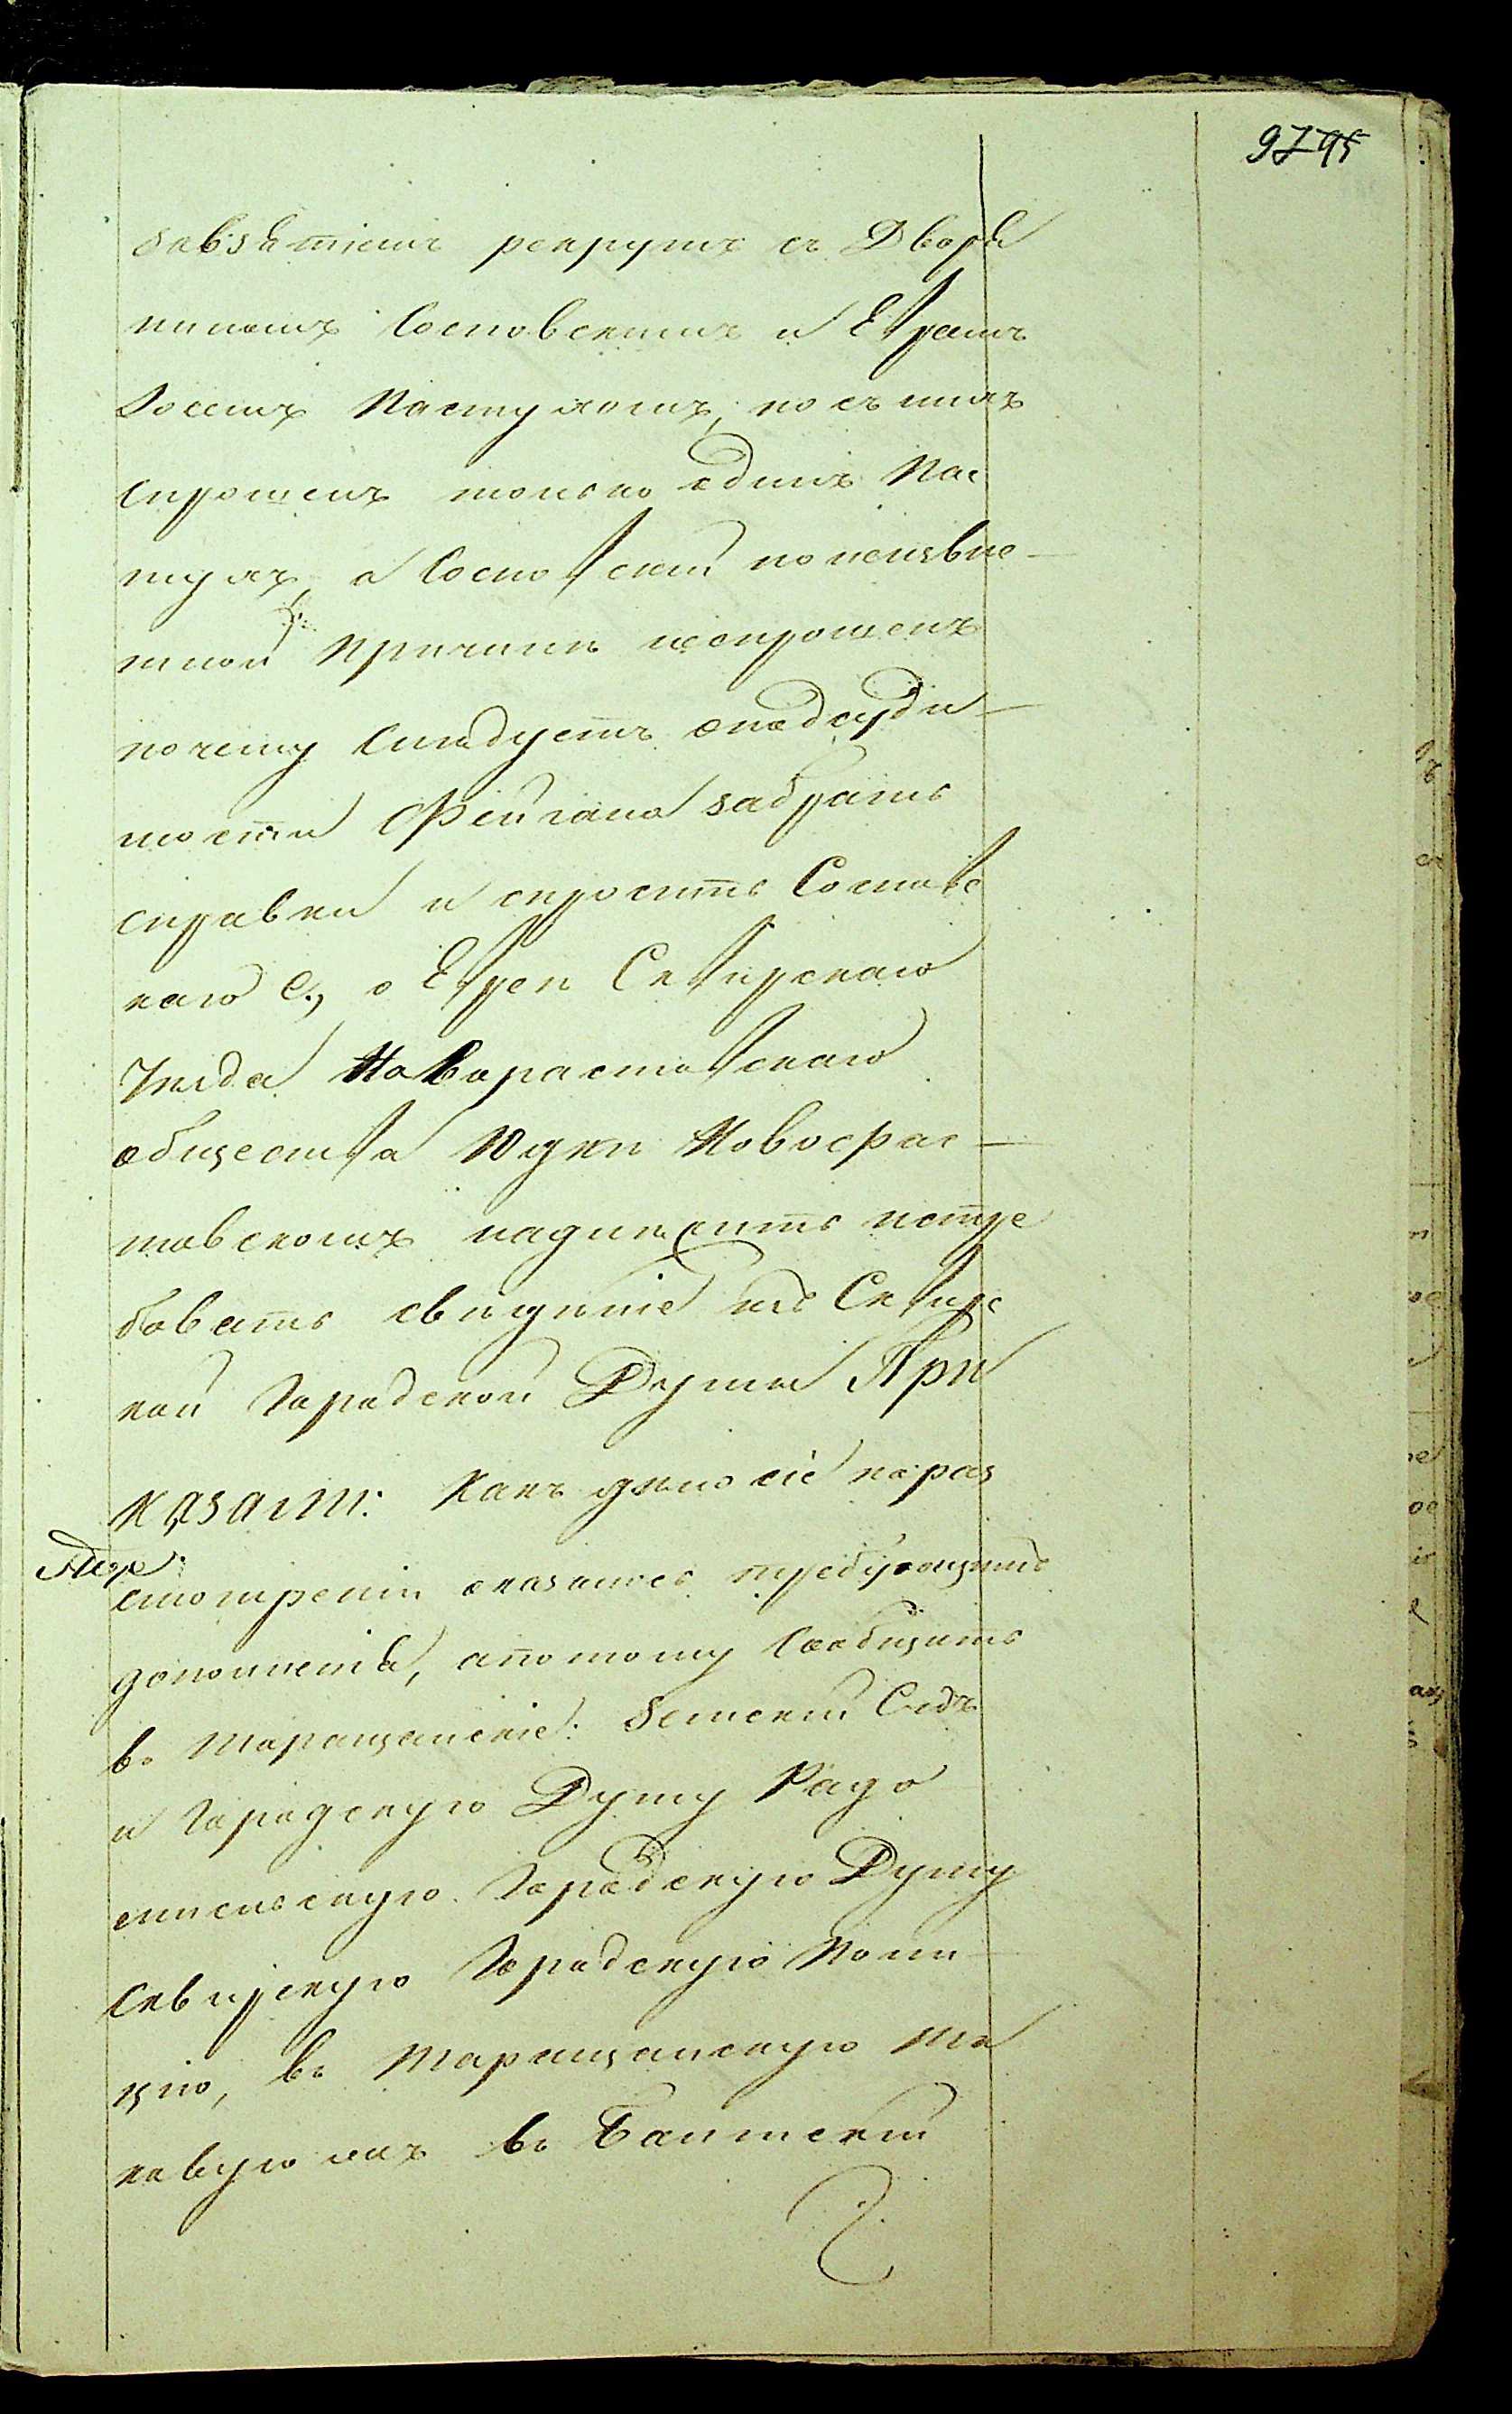 97 95
рекрутъ съ Дворя
ниномъ Сосновскимъ и Евреемъ
Пастухомъ, но съ нихъ
спрошенъ только одинъ Пас
тухъ, а Сосновскій по неизвес-
тной причинѣ неспрошенъ
почему слѣдуетъ о подсуди-
мости Фейгана забрать
справки и спросить Сосновс
каго е., о Евреѣ Сквирскаго
Уезда Наворастовскаго
общества Юдкѣ Новоорас-
товскомъ надлежитъ истре
бовать свѣдѣніе изъ Сквирс
кой Городской Думы При
казали: Какъ дѣло сіе по раз
смотреніи оказалось требующимъ
дополненія, а потому Сообщить
въ Таращанскіе: Земскій Судъ
и Городскую Думу Радо
мысльскую Городскую Думу
Сквирскую Городскую Поли-
цію, въ Таращанскую Та
кову южъ въ Балтскій